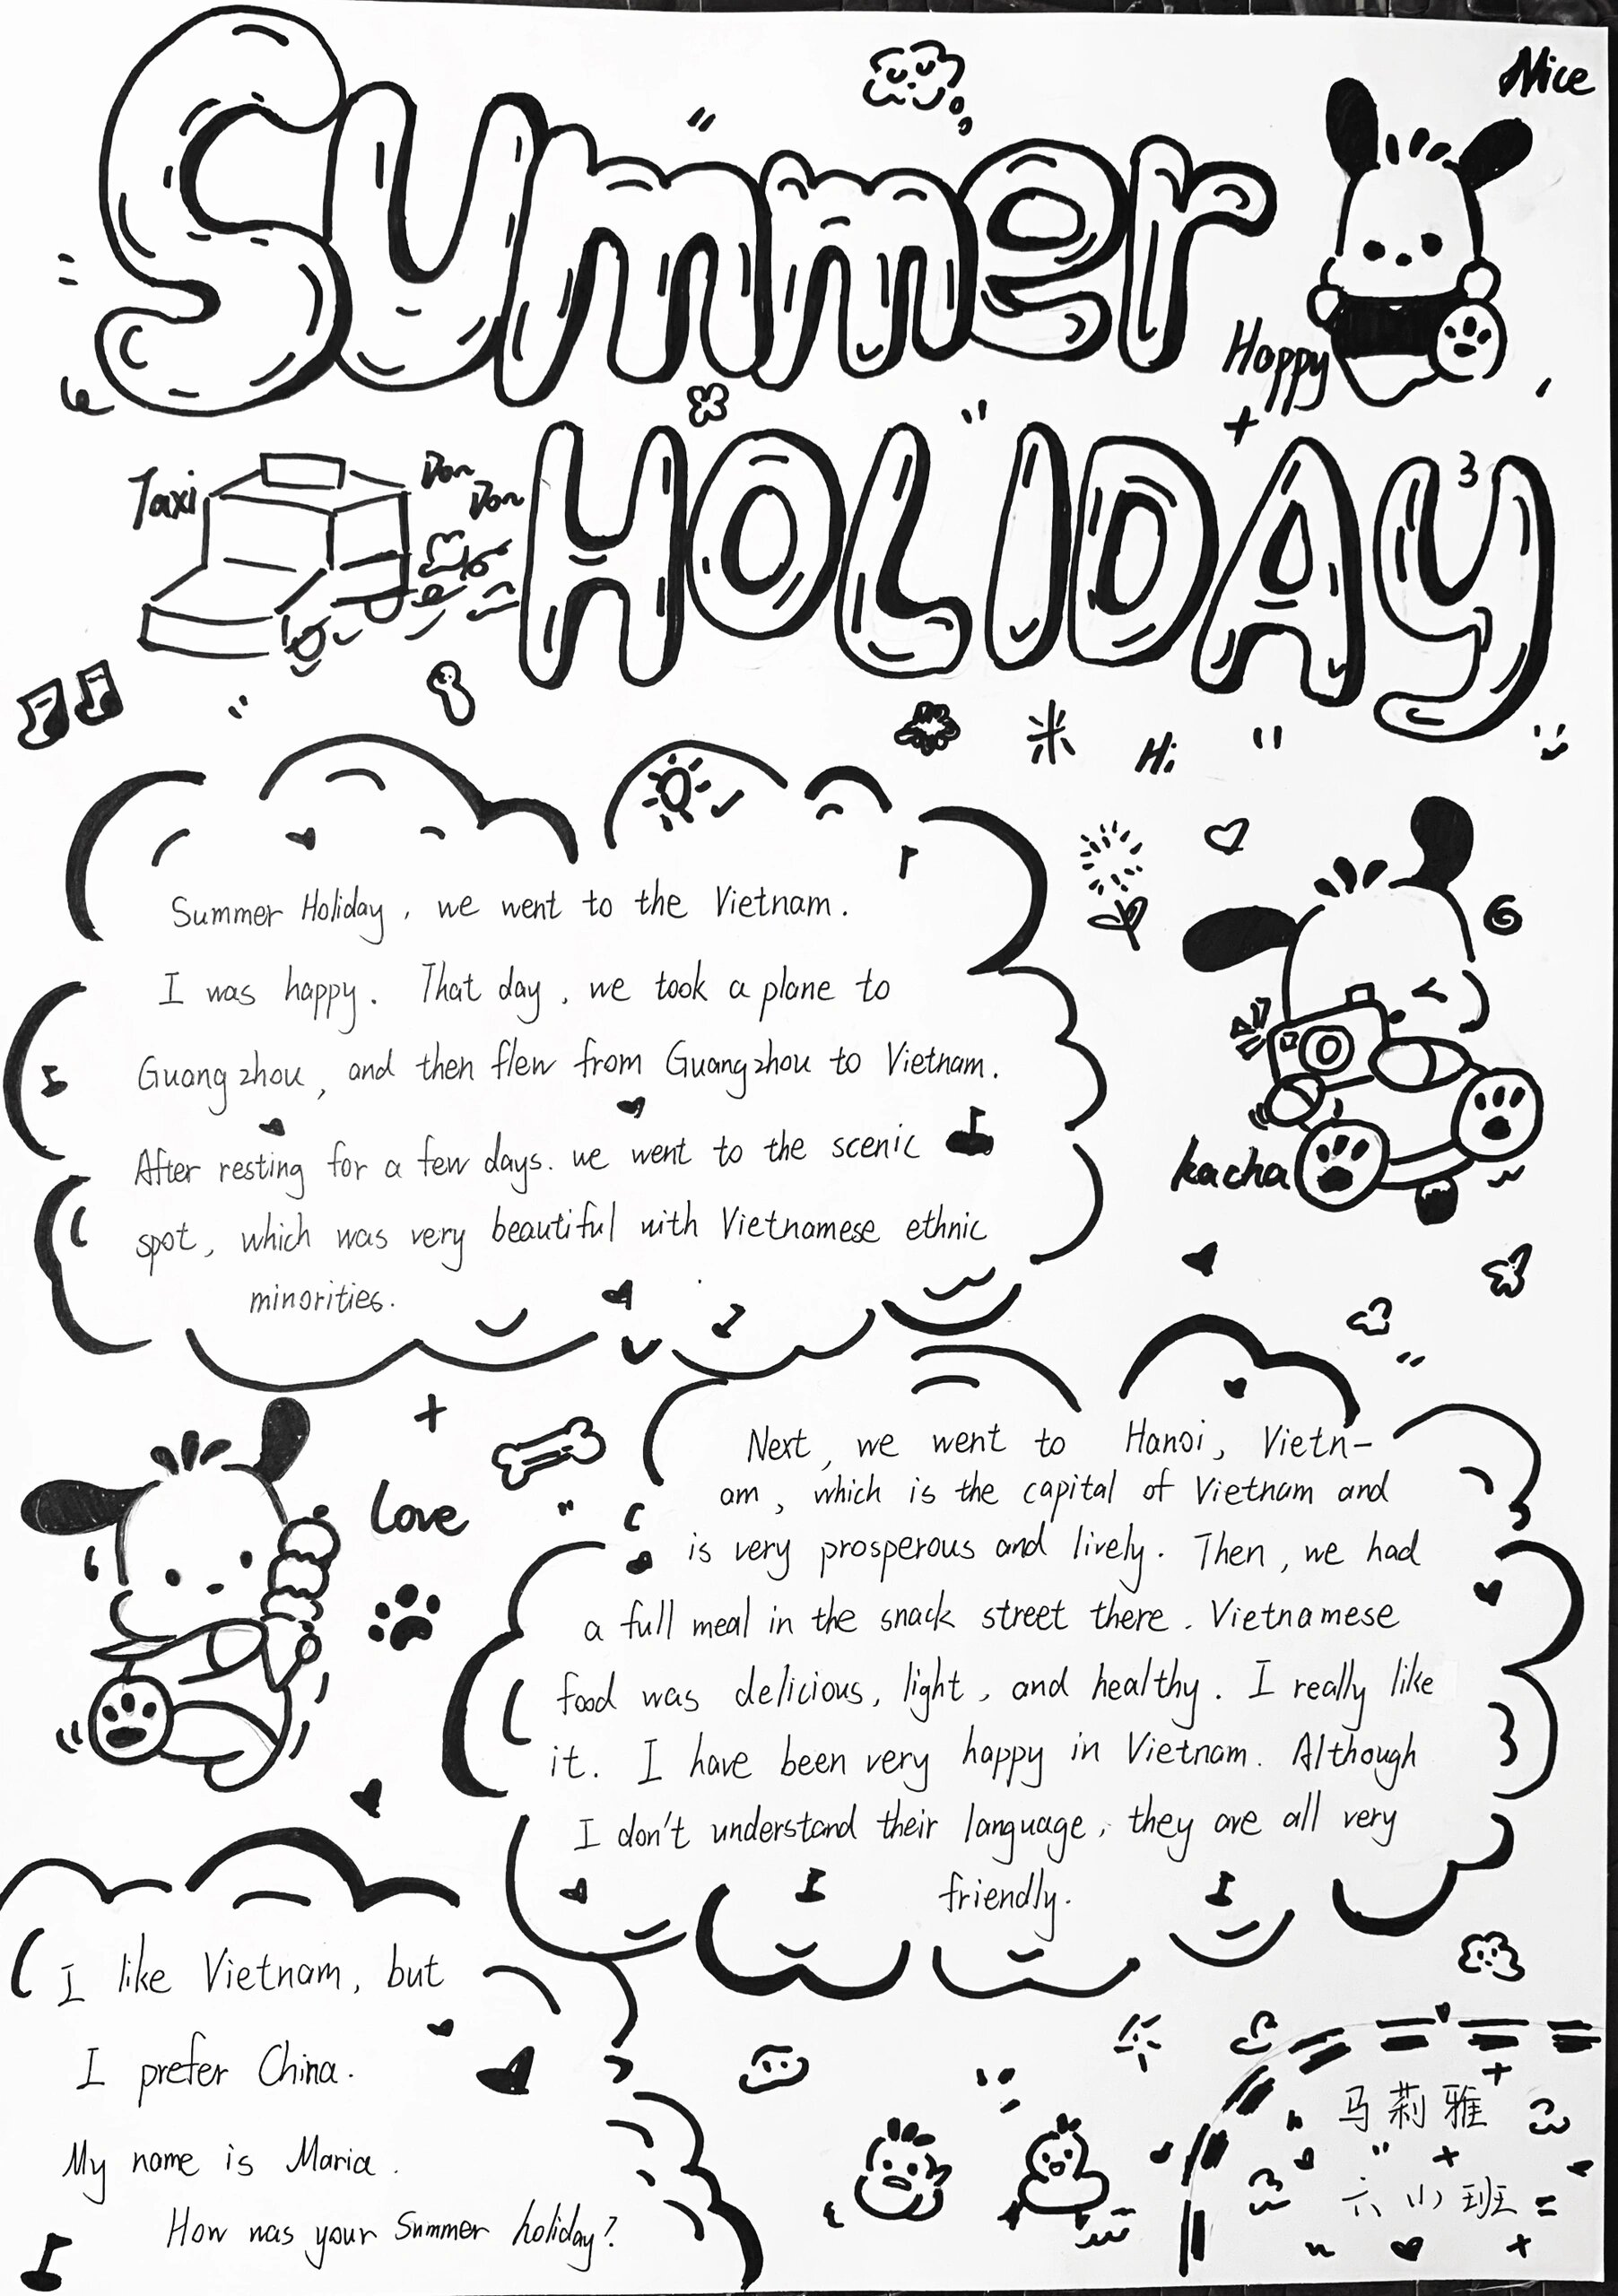 Nice
Summer
Happy
HOLIDAY
Taxi
Don
Don
Hi
Summer Holiday, we went to the Vietnam.
I was happy. That day, we took a plane to
Guangzhou, and then flew from Guangzhou to Vietnam.
After resting for a few days. we went to the scenic
spot, which was very beautiful with Vietnamese ethnic
minorities.
kacha
love
Next, we went to Hanoi, Vietn-
am, which is the capital of Vietnam and
is very prosperous and lively. Then, we had
a full meal in the snack street there. Vietnamese
food was delicious, light, and healthy. I really like
it. I have been very happy in Vietnam. Although
I don't understand their language, they are all very
friendly.
I like Vietnam, but
I prefer China.
My name is Maria.
How was your Summer holiday?
马莉雅